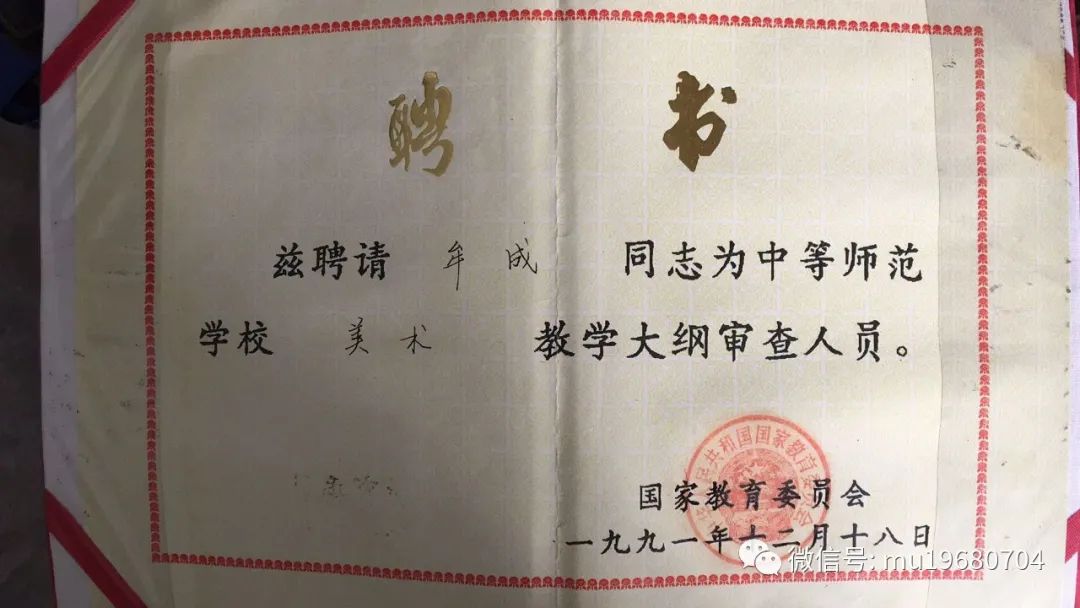 聘书
兹聘请 牟成 同志为中等师范
学校 美术 教学大纲审查人员。
民共和国国家教育委员会
国家教育委员会
一九九一年十二月十八日
微信号: mu19680704